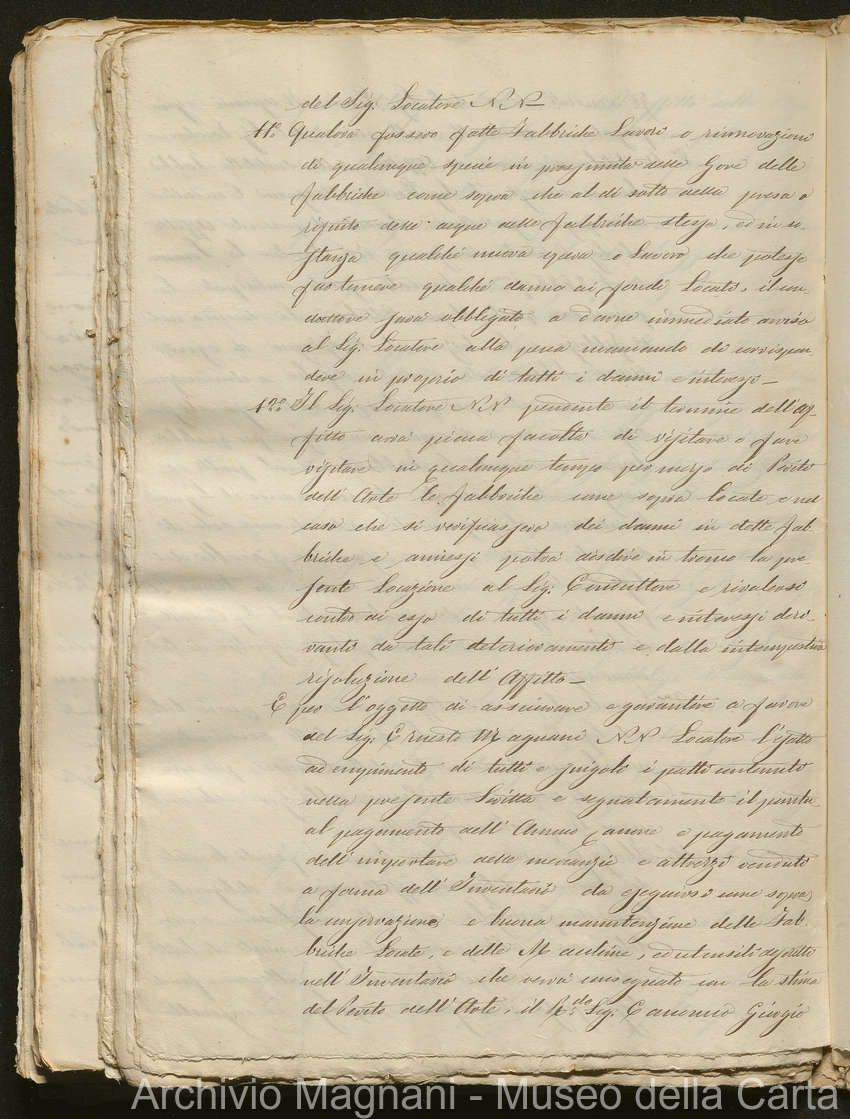 del Sig: Locatore N N —
11.° Qualora fossero fatte Fabbriche Lavori o rinnovazioni
di qualunque specie in prossimità delle Gore delle
Fabbriche come sopra che al di sotto della presa o
rifiuto delle acque delle Fabbriche stesse, ed in so-
stanza qualche nuova opera o Lavoro che potesse
far temere qualche danno ai fondi Locati, il con-
duttore sarà obbligato a darne immediato avviso
al Sig: Locatore alla pena mancando di corrispon-
dere in proprio di tutti i danni e interessi —
12.° Il Sig: Locatore N N pendente il termine dell'Af-
fitto avrà piena facoltà di visitare o fare
visitare in qualunque tempo per mezzo di Perito
dell'Arte le Fabbriche come sopra Locate e nel
caso che si verificassero dei danni in dette Fab-
briche e annessi potrà disdire in tronco la pre-
sente Locazione al Sig: Conduttore e rivalersi
contro di esso di tutti i danni e interessi deri-
vanti da tali deterioramenti e dalla intempestiva
risoluzione dell'Affitto —
E per l'oggetto di assicurare e garantire a favore
del Sig: Ernesto Magnani N N Locatore l'esatto
adempimento di tutti e singoli i patti contenuti
nella presente Scritta e segnatamente il puntu-
al pagamento dell'Annuo Canone e pagamento
dell'importare delle mercanzie e attrezzi venduti
a forma dell'Inventario da eseguirsi come sopra,
la conservazione, e buona manutenzione delle Fab-
briche Locate, e delle Macchine, ed utensili descritti
nell'Inventario che verrà consegnato con la stima
del Perito dell'Arte, il R.do Sig: Canonico Giorgio
Archivio Magnani - Museo della Carta